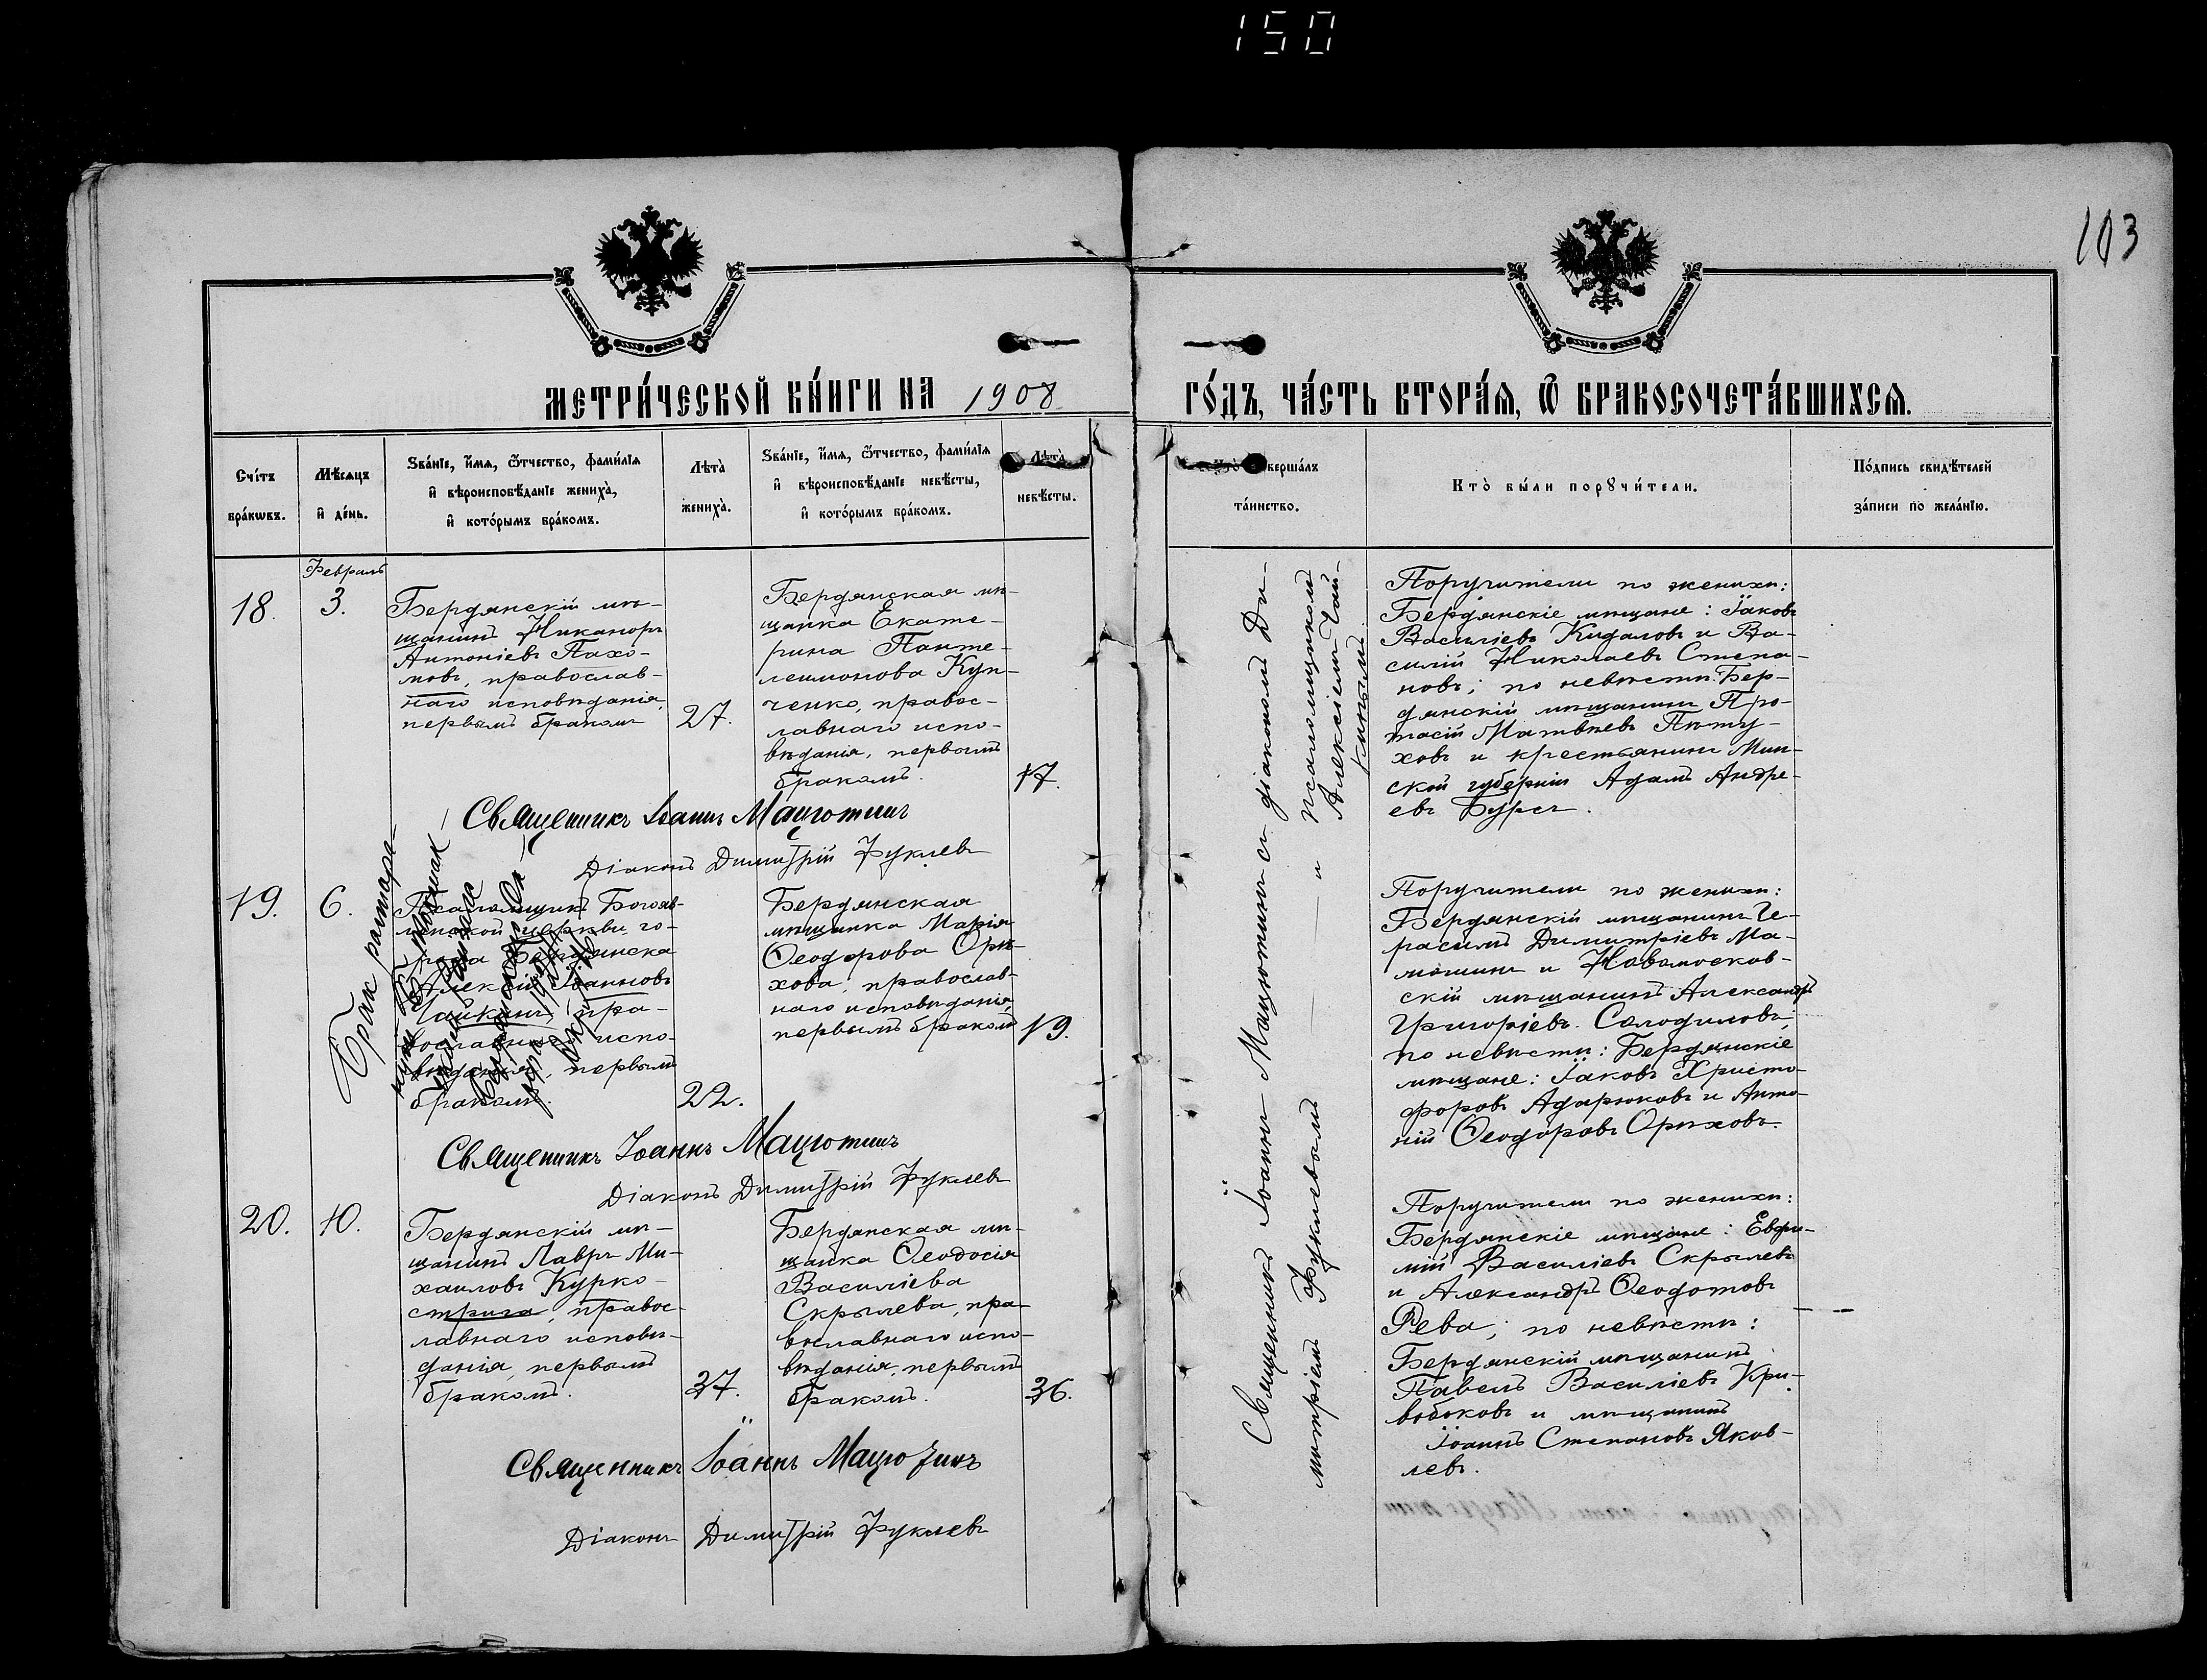 150
103
МЕТРИ́ЧЕСКОЙ КНИ́ГИ НА 1908
ГО́ДЪ, ЧА́СТЬ ВТОРА́Я, Ѿ БРАКОСОЧЕТА́ВШИХСЯ.
Сче́тъ
бра́кѡвъ.
Мѣ́сяцъ
и҆ де́нь.
Ѕва́нїе, и҆́мя, ѻ҆́тчество, фами́лїя
и҆ вѣроисповѣ́данїе жениха̀,
и҆ кото́рымъ бра́комъ.
Лѣта̀
жениха̀.
Ѕва́нїе, и҆́мя, ѻ҆́тчество, фами́лїя
и҆ вѣроисповѣ́данїе невѣ́сты,
и҆ кото́рымъ бра́комъ.
Лѣта̀
невѣ́сты.
Кто̀ совершалъ
та́инство.
Кто̀ бы́ли порꙋчи́тели.
По́дпись свидѣ́телей
за́писи по жела́нїю.
Февраль
18.
3.
Бердянскій мѣ-
щанинъ Никаноръ
Антоніевъ Пахо-
мовъ, православ-
наго исповѣданія,
первымъ бракомъ
27.
Бердянская мѣ-
щанка Екате-
рина Панте-
леимонова Куп-
ченко, правос-
лавнаго испо-
вѣданія, первымъ
бракомъ.
17.
Поручители по женихѣ:
Бердянскіе мѣщане: Іаковъ
Василіевъ Кидаловъ и Ва-
силій Николаевъ Степа-
новъ; по невѣстѣ: Бер-
дянскій мѣщанинъ Про-
тасій Матвѣевъ Пѣту-
ховъ и крестьянинъ Мин-
ской губерніи Адамъ Андре-
евъ Бурсъ.
Священникъ Іоаннъ Мацютинъ
Діаконъ Димитрій Фуклевъ
19.
6.
Псаломщикъ Богояв-
ленской церкви го-
рода Бердянска
Алексій Іоанновъ
Чайкинъ, пра-
вославнаго испо-
вѣданія, первымъ
бракомъ.
22.
Брак расторг-
Бердянская
мѣщанка Марія
Ѳеодорова Орѣ-
хова, православ-
наго исповѣданія
первымъ бракомъ
19.
Поручители по женихѣ:
Бердянскій мѣщанинъ Ге-
расимъ Димитріевъ Ма-
мошинъ и Новомосков-
скій мѣщанинъ Александръ
Григоріевъ Солодиловъ;
по невѣстѣ: Бердянскіе
мѣщане: Іаковъ Христо-
форовъ Адарюковъ и Анто-
ній Ѳеодоровъ Орѣховъ.
Священникъ Іоаннъ Мацютинъ
Діаконъ Димитрій Фуклевъ
20.
10.
Бердянскій мѣ-
щанинъ Лавръ Ми-
хаиловъ Курко-
стрига, правос-
лавнаго исповѣ-
данія, первымъ
бракомъ.
37.
Бердянская мѣ-
щанка Ѳеодосія
Василіева
Скрылева, пра-
вославнаго испо-
вѣданія, первымъ
бракомъ.
36.
Поручители по женихѣ:
Бердянскіе мѣщане: Евфи-
мій Василіевъ Скрылевъ
и Александръ Ѳеодотовъ
Рева; по невѣстѣ:
Бердянскій мѣщанинъ
Павелъ Василіевъ Кри-
вобоковъ и мѣщанинъ
Іоаннъ Степановъ Яков-
левъ.
Священникъ Іоаннъ Мацютинъ
Діаконъ Димитрій Фуклевъ
Священникъ Іоаннъ Мацютинъ съ діакономъ Ди-
митріемъ Фуклевымъ и псаломщикомъ
Алексіемъ Чай-
кинымъ.